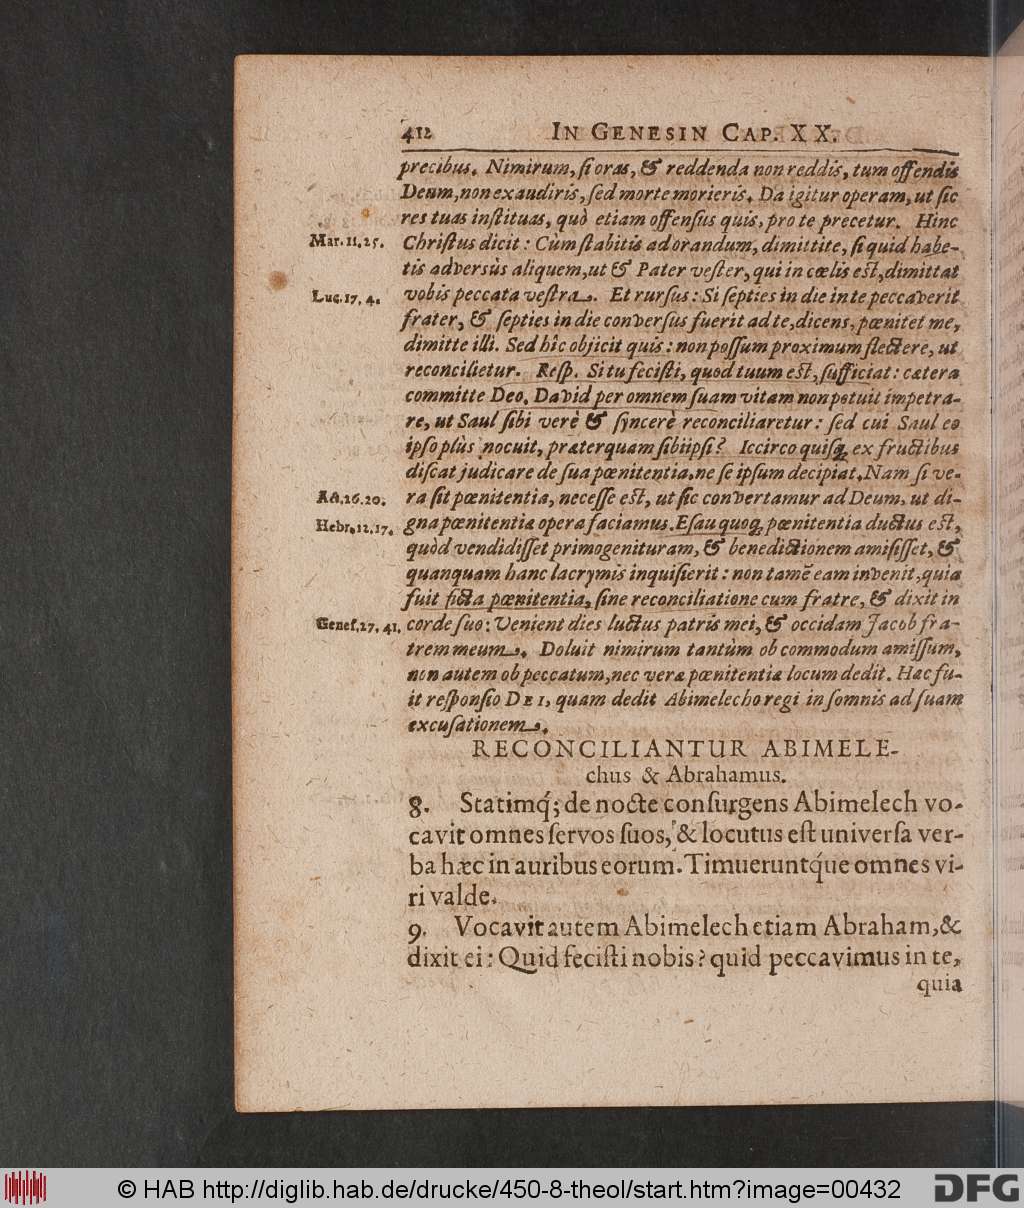 412 IN GENESIN CAP. XX.
precibus. Nimirum, si oras, & reddenda non reddis, tum offendis
Deum, non exaudiris, sed morte morieris. Da igitur operam, ut sic
res tuas instituas, quò etiam offensus quis, pro te precetur. Hinc
Mar. 11. 25. Christus dicit: Cùm stabitis ad orandum, dimittite, si quid habe-
tis adversùs aliquem, ut & Pater vester, qui in cœlis est, dimittat
Luc. 17. 4. vobis peccata vestra. Et rursus: Si septies in die in te peccaverit
frater, & septies in die conversus fuerit ad te, dicens, pœnitet me,
dimitte illi. Sed hîc objicit quis: non possum proximum flectere, ut
reconcilietur. Resp. Si tu fecisti, quod tuum est, sufficiat: cætera
committe Deo. David per omnem suam vitam non potuit impetra-
re, ut Saul sibi verè & syncerè reconciliaretur: sed cui Saul eo
ipso plùs nocuit, præterquam sibi ipsi? Iccirco quisq; ex fructibus
discat judicare de sua pœnitentia, ne se ipsum decipiat. Nam si ve-
Act. 26. 20. ra sit pœnitentia, necesse est, ut sic convertamur ad Deum, ut di-
Hebr. 12. 17. gna pœnitentia opera faciamus. Esau quoq; pœnitentia ductus est,
quòd vendidisset primogenituram, & benedictionem amisisset, &
quanquam hanc lacrymis inquisierit: non tamē eam invenit, quia
fuit ficta pœnitentia, sine reconciliatione cum fratre, & dixit in
Genes. 27. 41. corde suo: Venient dies luctus patris mei, & occidam Jacob fra-
trem meum. Doluit nimirum tantùm ob commodum amissum,
non autem ob peccatum, nec veræ pœnitentiæ locum dedit. Hæc fu-
it responsio DEI, quam dedit Abimelecho regi in somnis ad suam
excusationem.
RECONCILIANTUR ABIMELE-
chus & Abrahamus.
8. Statimq́; de nocte consurgens Abimelech vo-
cavit omnes servos suos, & locutus est universa ver-
ba hæc in auribus eorum. Timueruntq́ue omnes vi-
ri valde.
9. Vocavit autem Abimelech etiam Abraham, &
dixit ei: Quid fecisti nobis? quid peccavimus in te,
quia
© HAB http://diglib.hab.de/drucke/450-8-theol/start.htm?image=00432 DFG